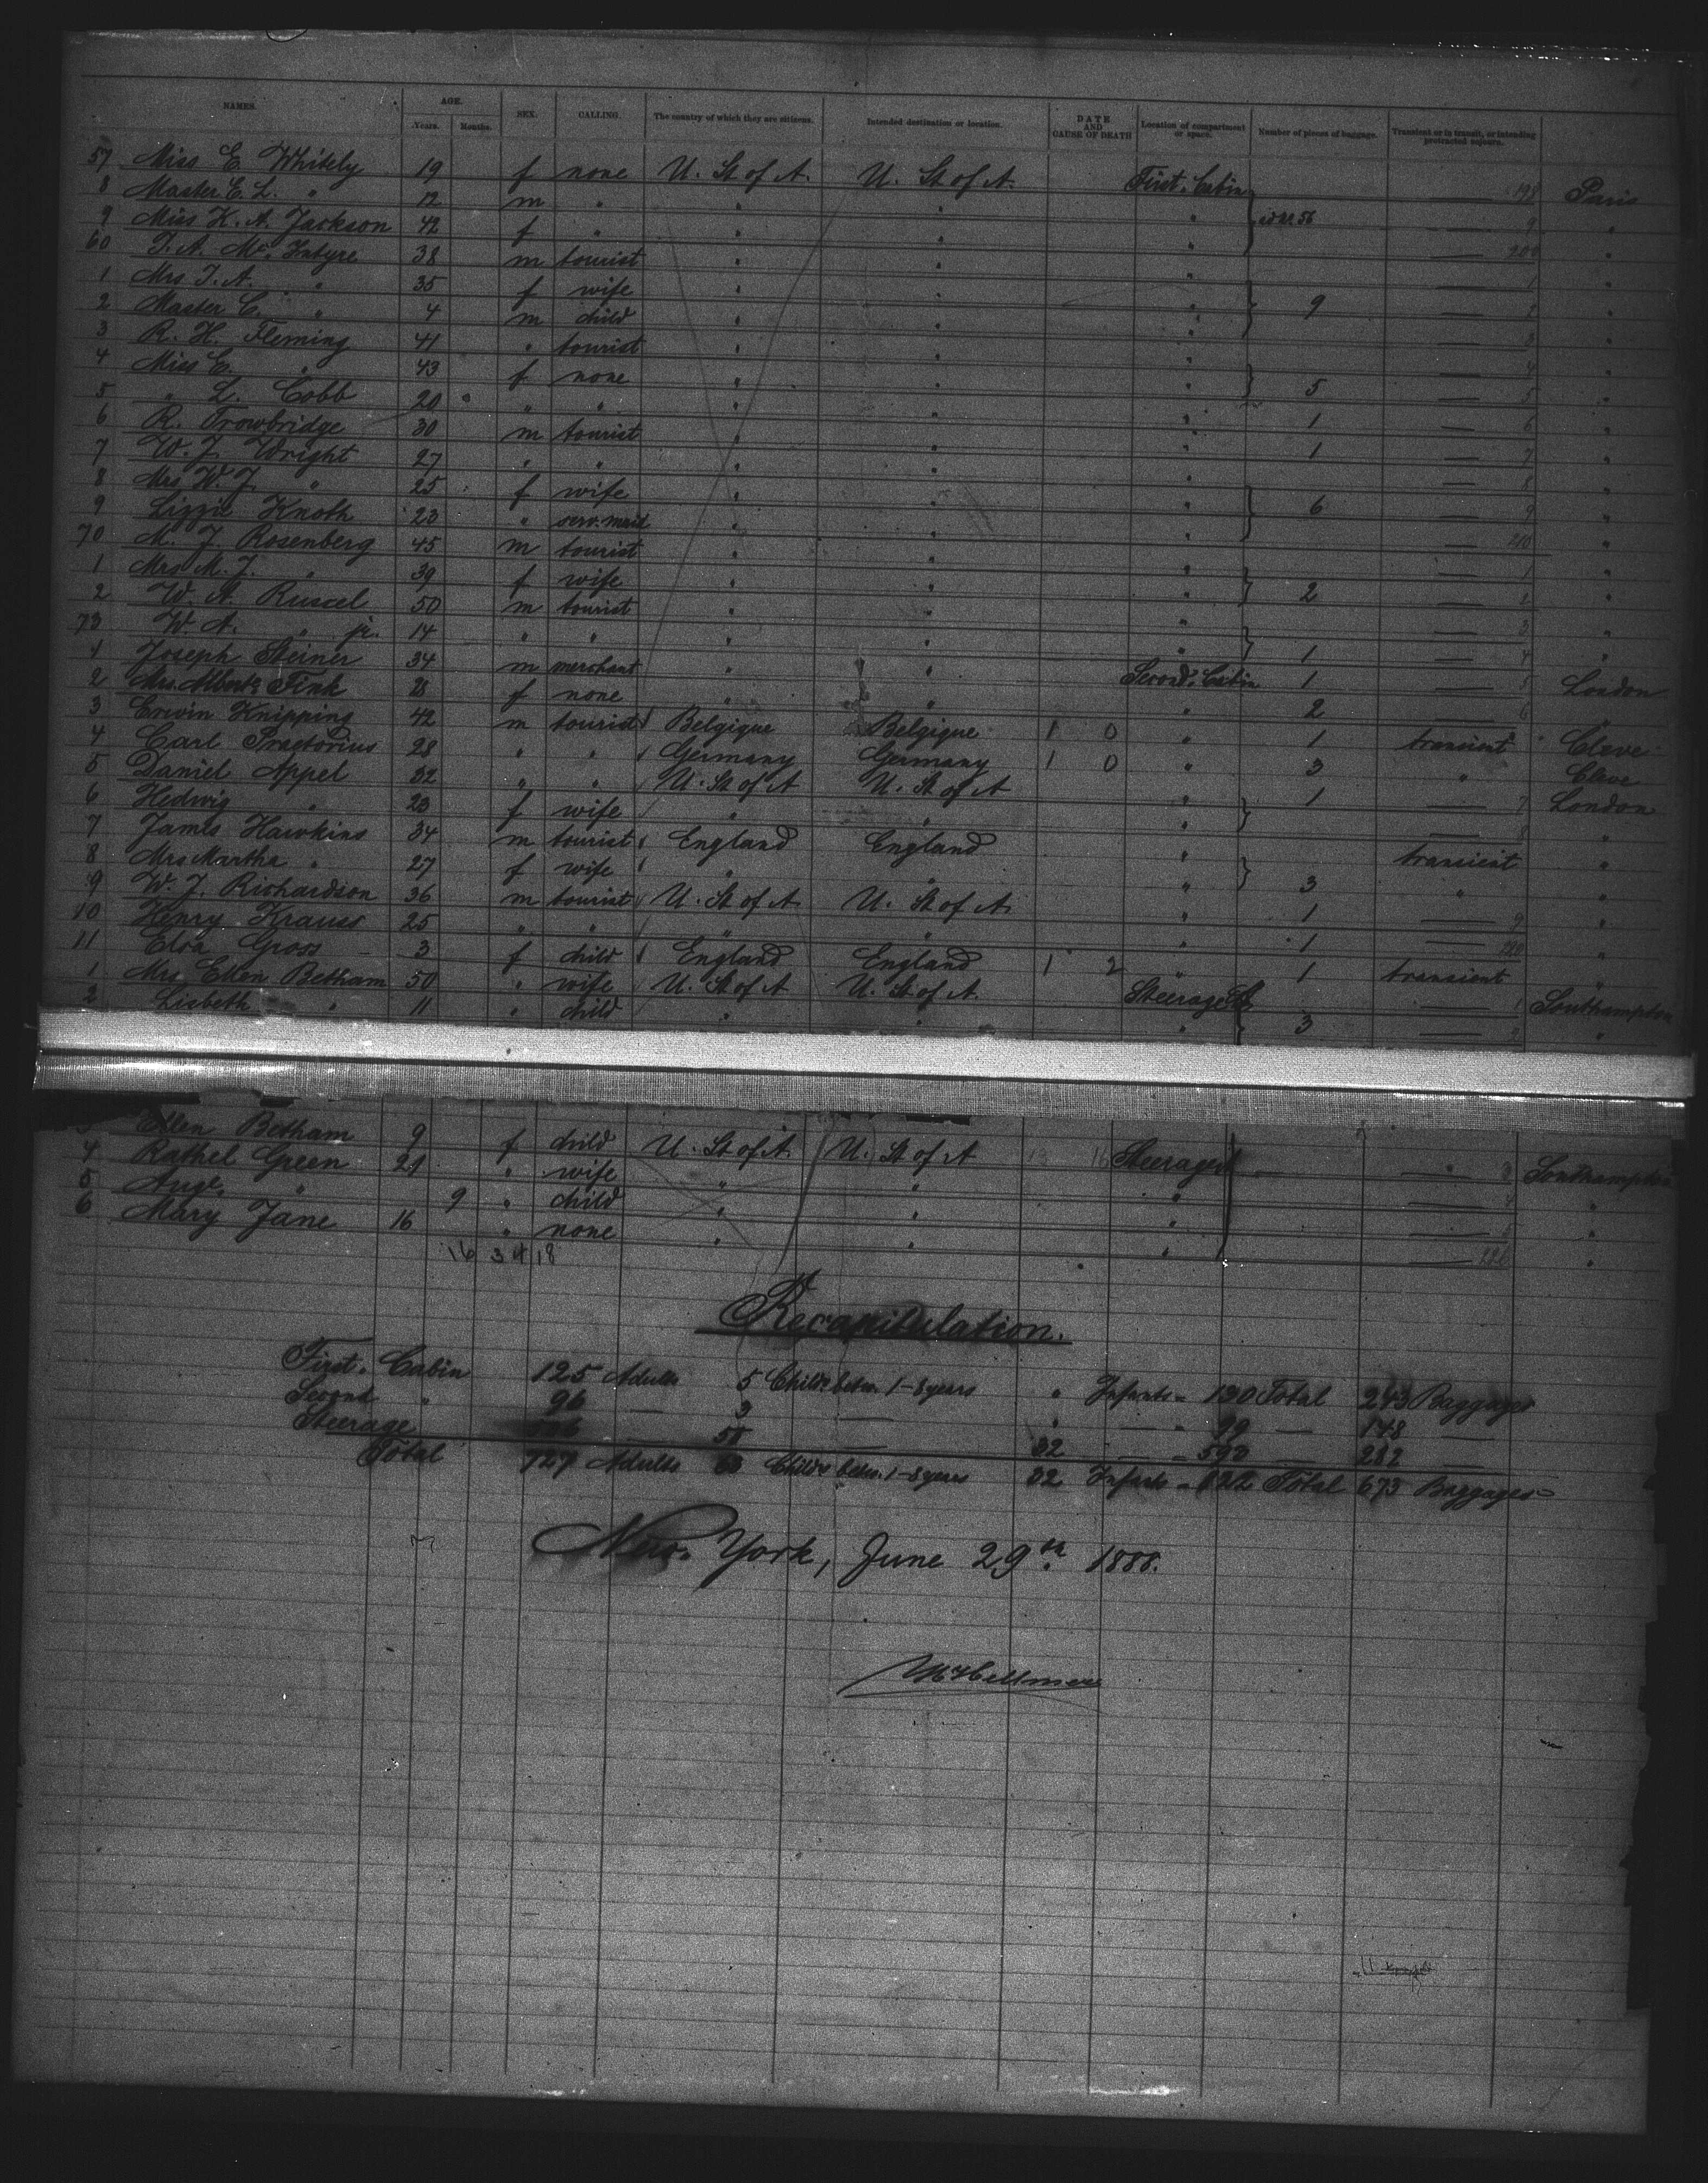 NAMES. AGE. Years. Months. SEX. CALLING. The country of which they are citizens. Intended destination or location. DATE AND CAUSE OF DEATH Location of compartment or space. Number of pieces of baggage. Transient or in transit, or intending protracted sojourn.
57 Miss E. Whitely 19 f none U. St of A. U. St of A. First. Cabin 198 Paris
8 Master E. L. " 12 m " " " " 9 "
9 Miss K. A. Jackson 42 f " " " " 200 "
60 T. A. Mc. Intyre 38 m tourist " " " 1 "
1 Mrs T. A. " 35 f wife " " " 9 2 "
2 Master C. " 4 m child " " " 3 "
3 R. H. Fleming 41 " tourist " " " 4 "
4 Miss E. " 43 f none " " " 5 5 "
5 " L. Cobb 20 " " " " " 1 6 "
6 R. Trowbridge 30 m tourist " " " 1 7 "
7 W. J. Wright 27 " " " " " 8 "
8 Mrs W. J. " 25 f wife " " " 6 9 "
9 Lizzie Knoth 23 " serv. maid " " " 210 "
70 M. J. Rosenberg 45 m tourist " " " 1 "
1 Mrs M. J. " 39 f wife " " " 2 2 "
2 W. A. Ruscel 50 m tourist " " " 3 "
73 W. A. " jr. 14 " " " " " 1 4 "
1 Joseph Steiner 34 m merchant " " Second. Cabin 1 5 London
2 Mrs. Albert Fink 28 f none " " " 2 6 "
3 Erwin Knipping 42 m tourist Belgique Belgique 1 0 " 1 transient Cleve
4 Carl Praetorius 28 " " Germany Germany 1 0 " 3 " Cleve
5 Daniel Appel 32 " " U. St of A U. St of A " 1 7 London
6 Hedwig " 23 f wife " " " 8 "
7 James Hawkins 34 m tourist England England " transient "
8 Mrs Martha " 27 f wife " " " 3 " "
9 W. J. Richardson 36 m tourist U. St of A U. St of A. " 1 9 "
10 Henry Krauss 25 " " " " " 1 220 "
11 Elsa Gross 3 f child England England 1 2 " 1 transient "
1 Mrs Ellen Betham 50 " wife U. St of A U. St of A. Steerage 1 Southampton
2 Lisbeth " 11 " child " " " 3 2 "
3 Ellen Betham 9 f child U. St of A U. St of A Steerage 3 Southampton
4 Rathel Green 21 " wife " " " 4 "
5 Auge. " 9 " child " " " 5 "
6 Mary Jane 16 " none " " " 226 "
16 34 18
Recapitulation.
First. Cabin 125 Adults 5 Childr. betw. 1-8 years " Infants = 130 Total 243 Baggages
Second " 96 — 3 — " — 99 — 148 —
Steerage 58 — 32 — 593 — 282 —
Total 727 Adults 63 Childr. betw. 1-8 years 32 Infants = 822 Total 673 Baggages =
New York, June 29th. 1888.